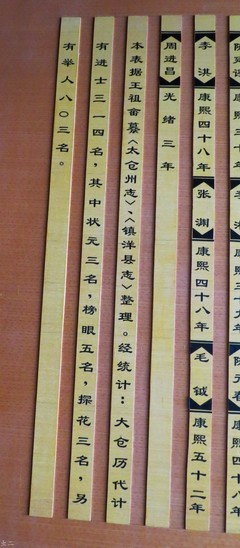 陈
康熙
李淇 康熙四十八年 张渊 康熙四十八年 毛钺 康熙五十二年
周进昌 光绪三年
本表据王祖畲纂《太仓州志》、《镇洋县志》整理。经统计：太仓历代计
有进士三一四名，其中状元三名，榜眼五名，探花三名，另
有举人八〇三名。